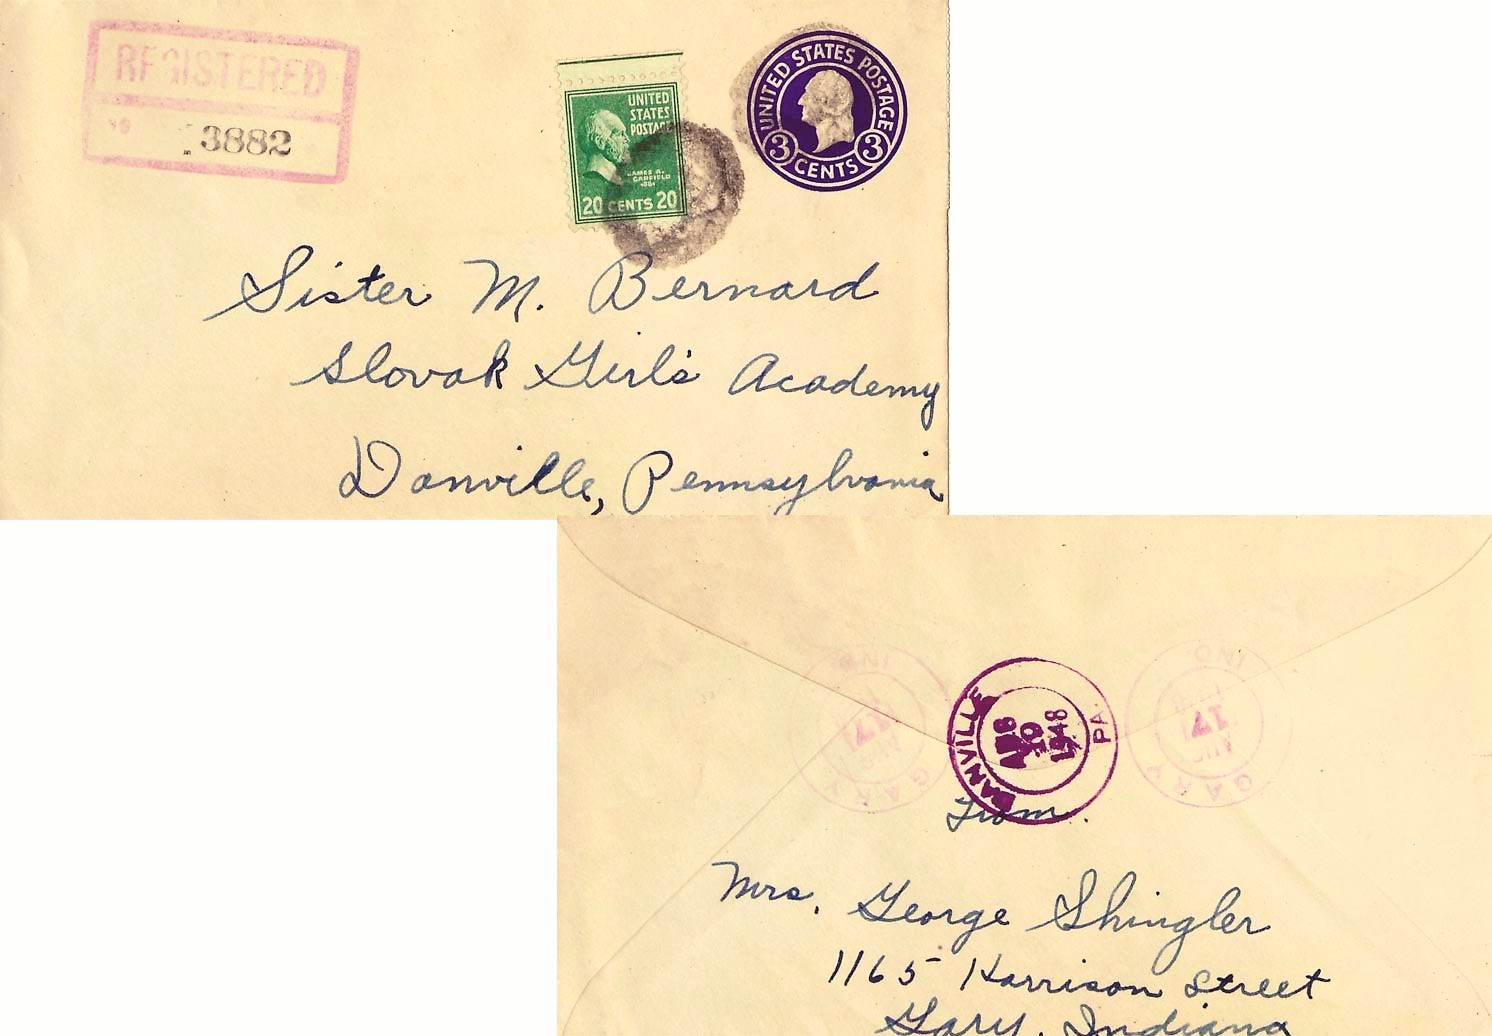 REGISTERED
No 3882
UNITED
STATES
POSTAGE
JAMES A.
GARFIELD
1881
20 CENTS 20
UNITED STATES POSTAGE
3 CENTS 3
Sister M. Bernard
Slovak Girl's Academy
Danville, Pennsylvania
GARY IND.
AUG
17
DANVILLE PA.
1948
GARY IND.
AUG
17
From
Mrs. George Shingler
1165 Harrison Street
Gary, Indiana